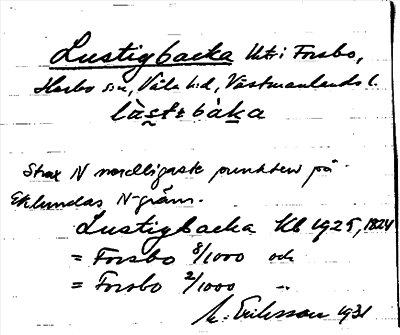 Lustigbacka Utr. i Forsbo,
Harbo sn, Våla hd, Västmanlands l.
Strax N nordligaste punkten på
Eklundas N-gräns.
Lustigbacka Kb 1925, 1824
= Forsbo 8/1000 och
= Forsbo 2/1000 -"-
Eriksson 1931